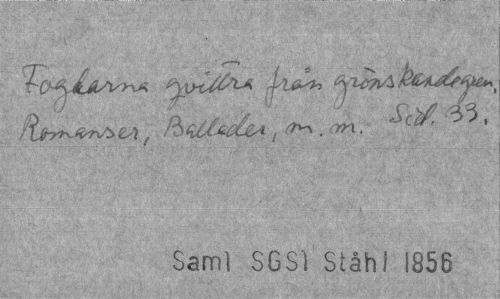 Foglarna qvittra från grönskande gren.
Romanser, Ballader, m.m. Sid. 33.
Saml SGSl Ståhl 1856